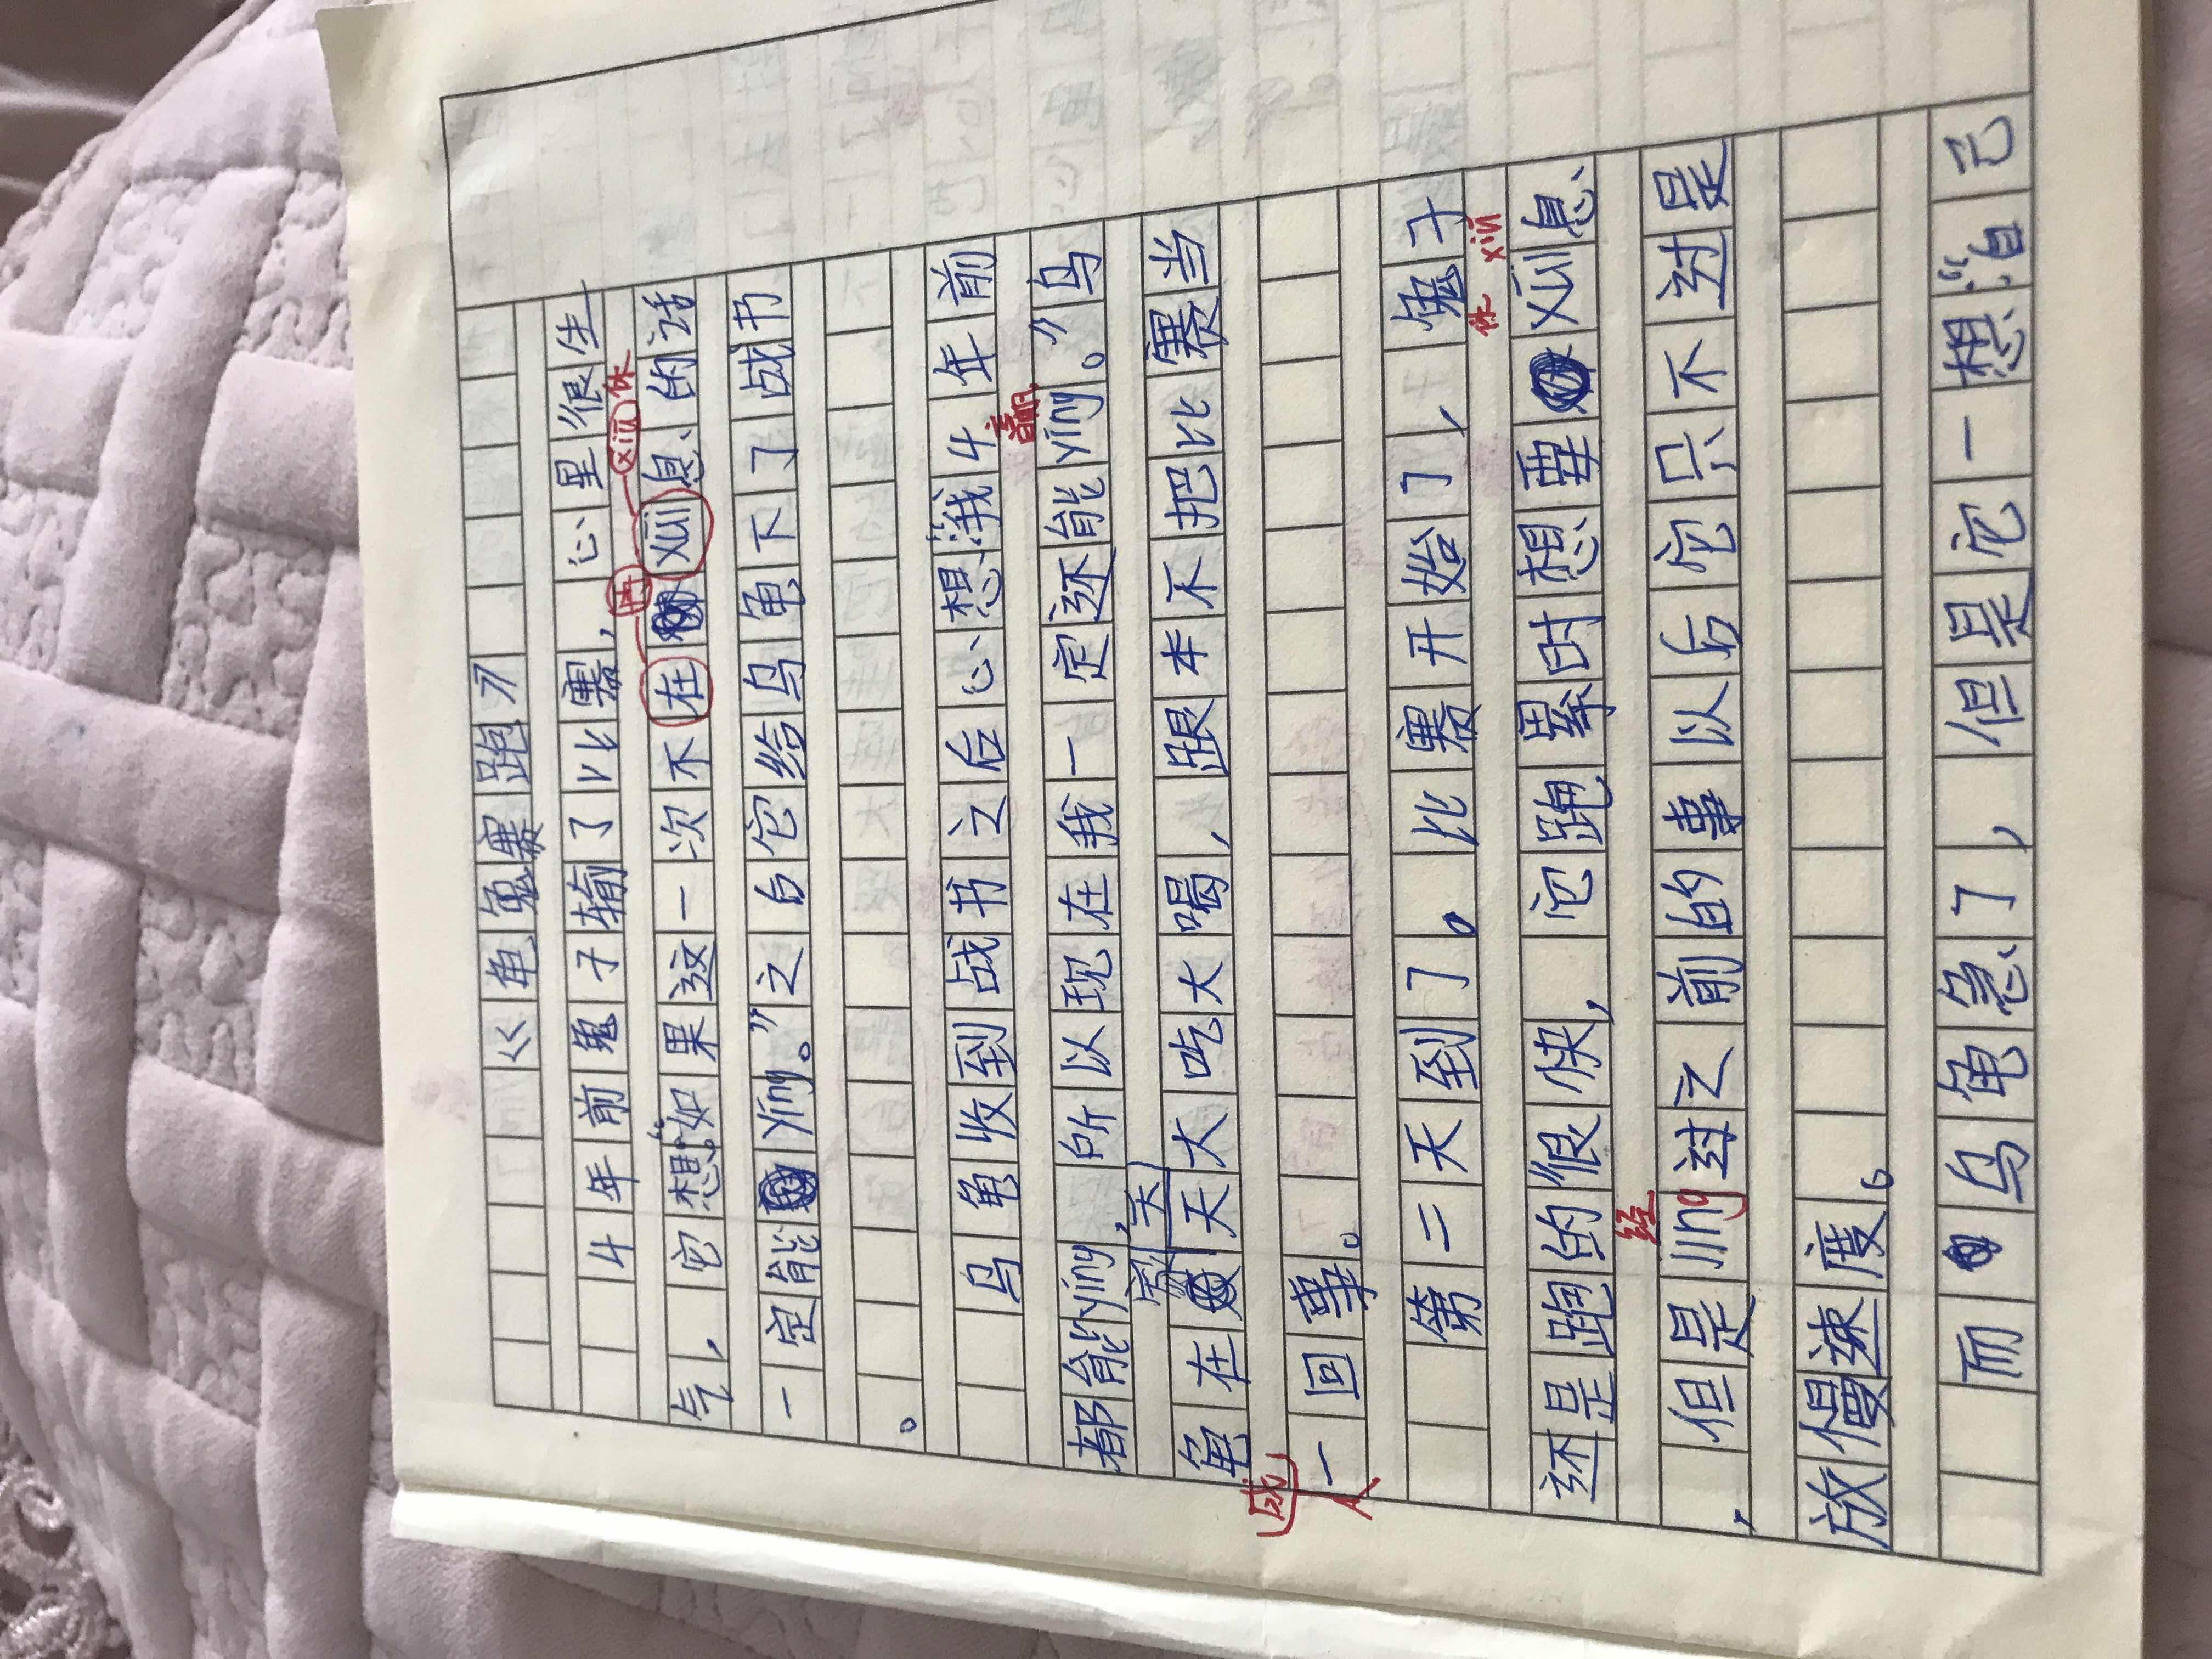 《龟兔赛跑》
4年前兔子输了比赛，心里很生
再 xiū 休
气，它想“如果这一次不在xiūi息的话
一定能yíng。”之后它给乌龟下了战书
。
乌龟收到战书之后心想“我4年前
赢
都能yíng，所以现在我一定还能yíng。”乌
家天
龟在天大吃大喝，跟本不把比赛当
成
一回事。
第二天到了。比赛开始了，兔子
休 xiū
还是跑的很快，它跑累时想要xiūi息
经
，但是jīng过之前的事以后它只不过是
放慢速度。
而乌龟急了，但是它一想“自己